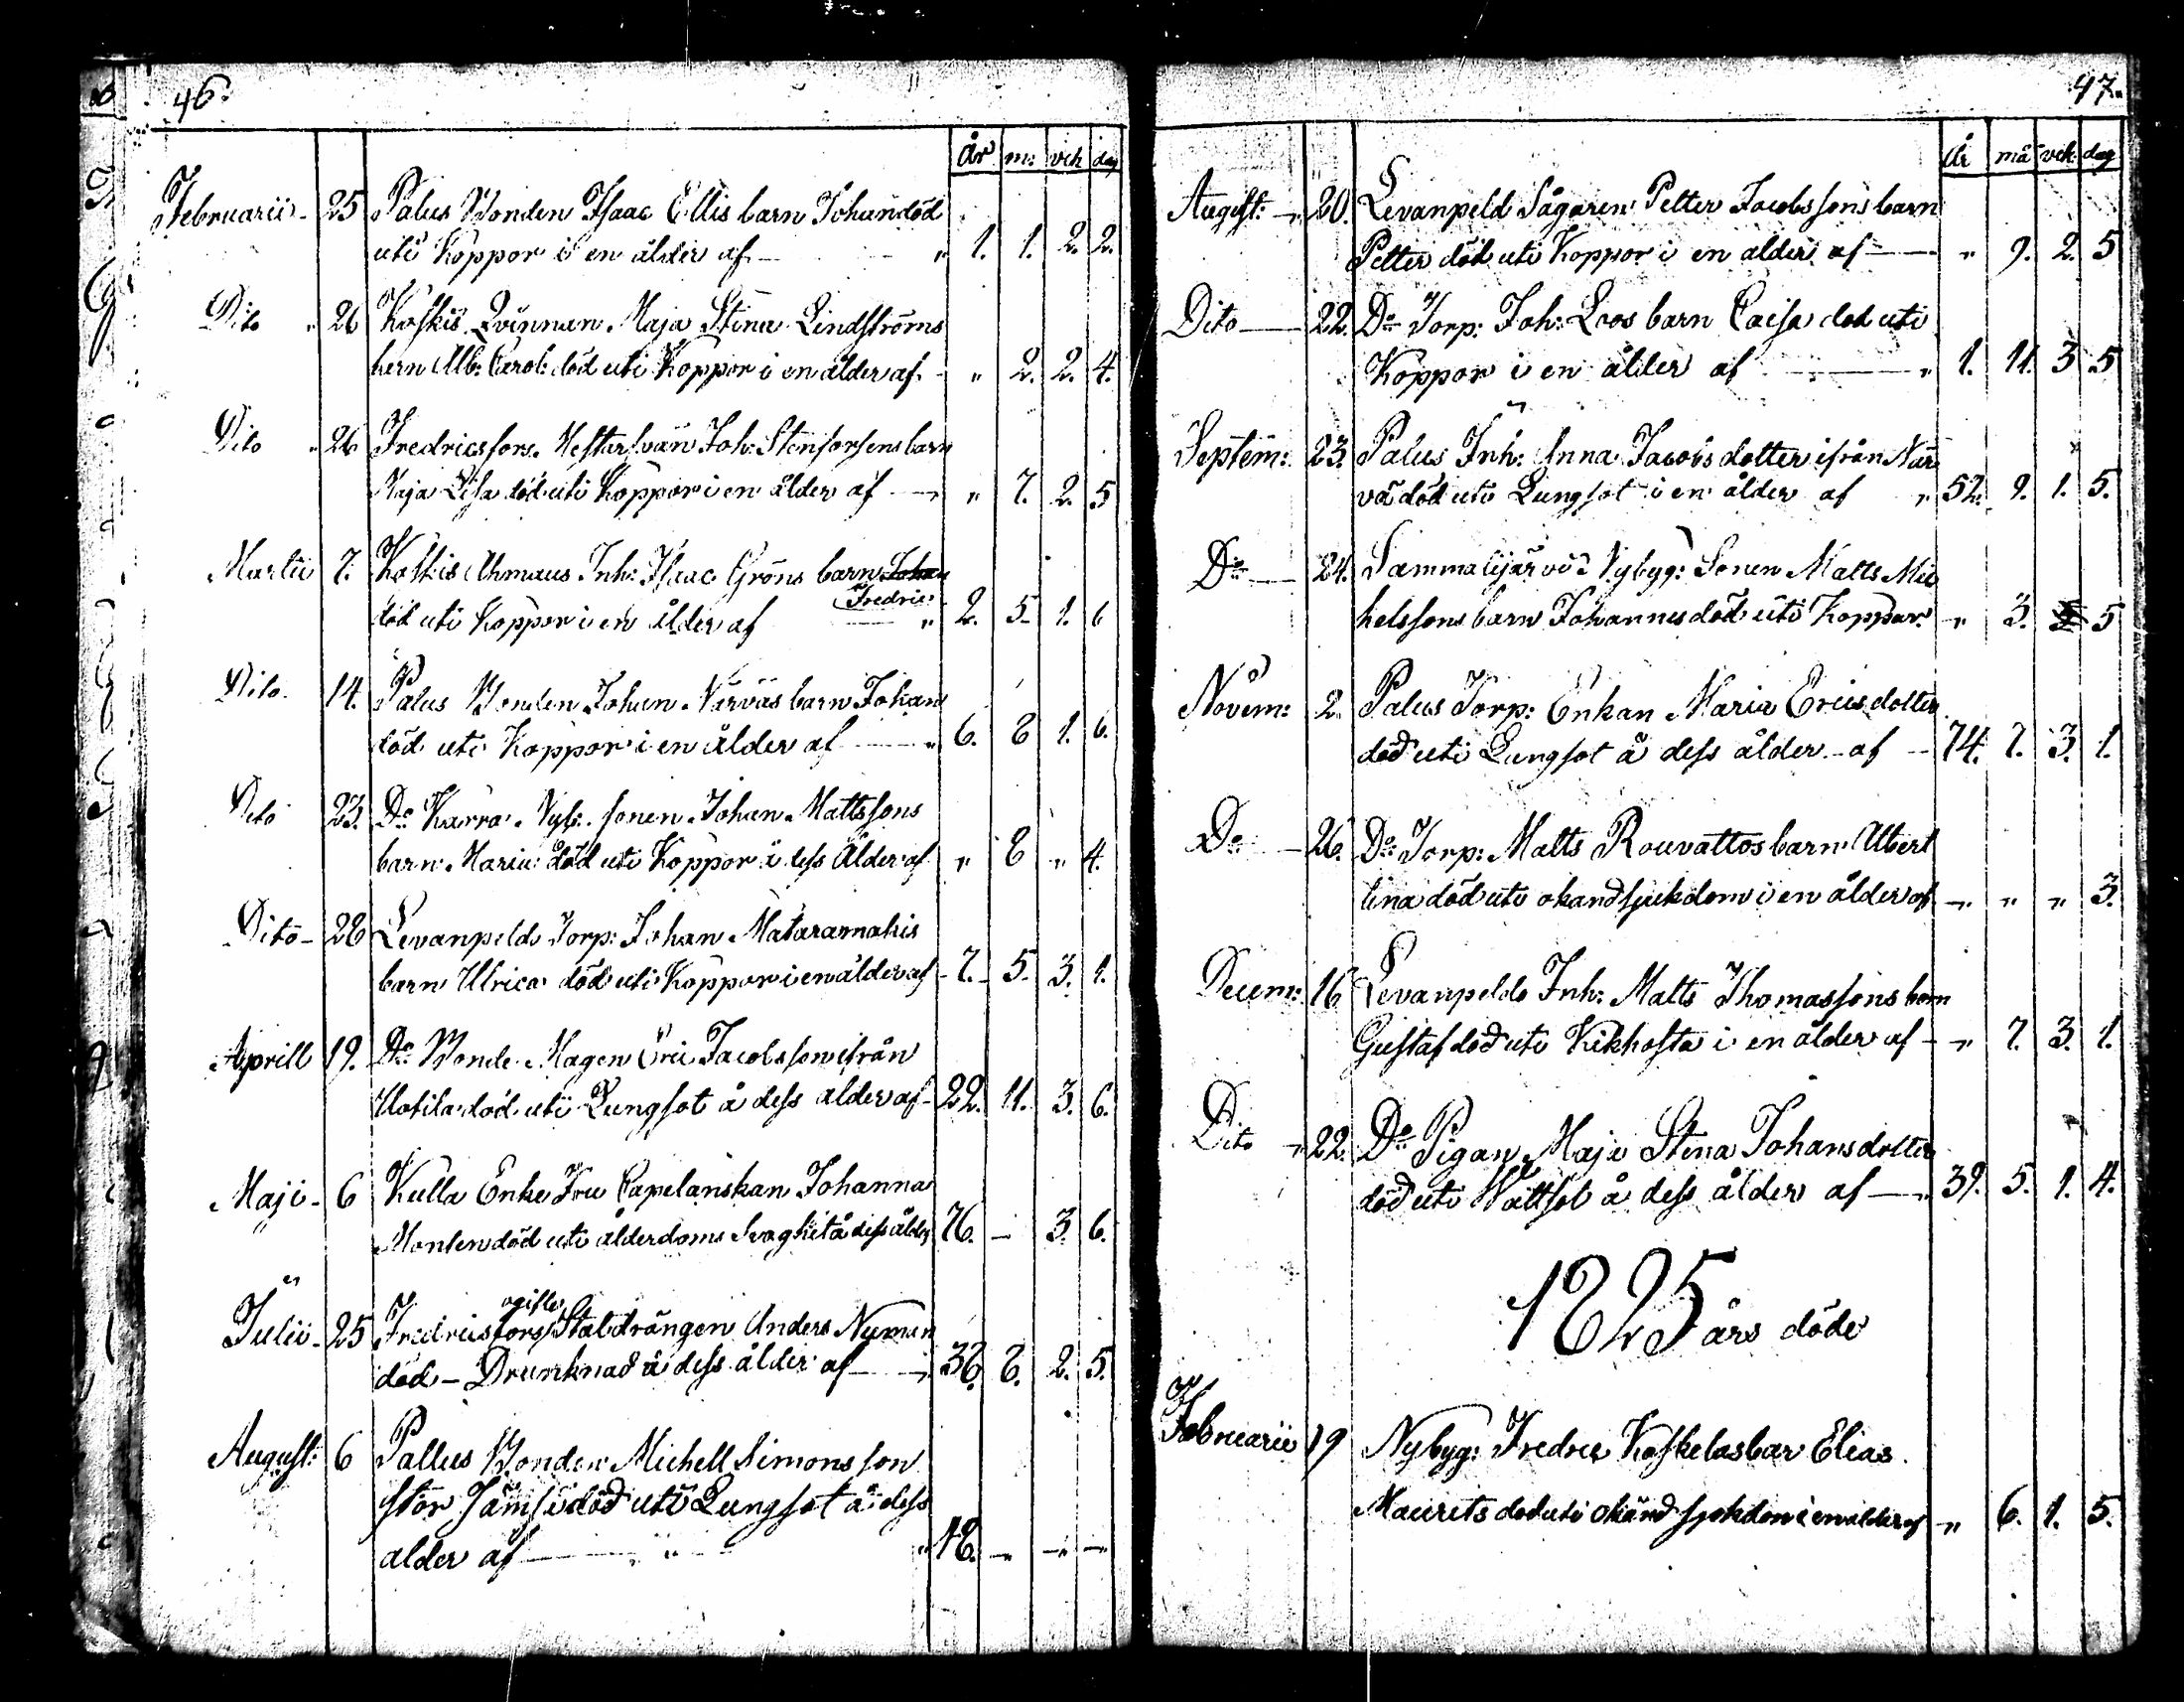 46.
År m: vck dag
Februarii 25 Palus Bonden Isaac Ellis barn Johan död
uti Koppor i en ålder af 1. 1. 2. 2.
Dito 26 Koskis Qvinnan Maja Stina Lindströms
barn Alb: Carol: död uti Koppor i en ålder af " 2. 2. 4.
Dito 26 Fredricsfors Mästersven Joh: Stenforsens barn
Maja Lisa död uti Koppor i en ålder af " 7. 2. 5
Martii 7. Koskis Ahmaus Inh: Isaac Gröns barn Johan
Fredric
död uti Koppor i en ålder af 2. 5. 1. 6
Dito 14. Palus Bonden Johan Närväs barn Johan
död uti Koppor i en ålder af 6. 8 1. 6.
Dito 23. Do Karra Nyb: sonen Johan Mattssons
barn Maria död uti Koppor å dess Ålder af " 8 " 4.
Dito 28 Levanpelds Torp: Johan Mataramakis
barn Ulrica död uti Koppor i en ålder af 7. 5. 3. 1.
Aprill 19. Do Bonde Magen Eric Jacobsson ifrån
död uti Lungsot å dess alder af 22. 11. 3. 6.
Maji 6 Kulla Enke Fru Capelanskan Johanna
Monten död uti ålderdoms Svaghet å dess ålder 76. – 3. 6.
ogifte
Julii 25 Fredricsfors Staldrängen Anders Nyman
död – Drunknad å dess ålder af 38. 8. 2. 5.
August: 6 Pallus Bonden Michell Simonsson
stor Jämsi död uti Lungsot å dess
alder af 48. " " "
47.
År må vck dag
August: 20. Levanpeld Sågaren Petter Jacobssons barn
Petter död uti Koppor i en alder af " 9. 2. 5
Dito 22. Do Torp: Joh: Loos barn Caisa död uti
Koppor i en ålder af 1. 11. 3 5
Septem: 23. Palus Inh: Anna Jacobsdotter ifrån När
vä död uti Lungsot i en ålder af 52. 9. 1. 5.
Do 24. Sammalijärvi Nybyg: Sonen Matts Mic
helssons barn Johannes död uti Koppor " 3. 5
Novem: 2. Palus Torp: Enkan Maria Ericsdotter
död uti Lungsot å dess ålder af 74. 7. 3. 1.
Do 26. Do Torp: Matts Rouvattos barn Albert
lina död uti okand sjukdom i en ålder af " " " 3.
Decem: 16 Levanpelds Inh: Matts Thomassons barn
Gustaf död uti Kikhosta i en ålder af " 7. 3. 1.
Dito 22. Do Pigan Maja Stina Johansdotter
död uti Wattsot å dess ålder af 39. 5. 1. 4.
1825 års döde
Februarii 19 Nybyg: Fredric Koskelas bar Elias
Maurits dod uti okänd sjukdom i en alder af " 6. 1. 5.